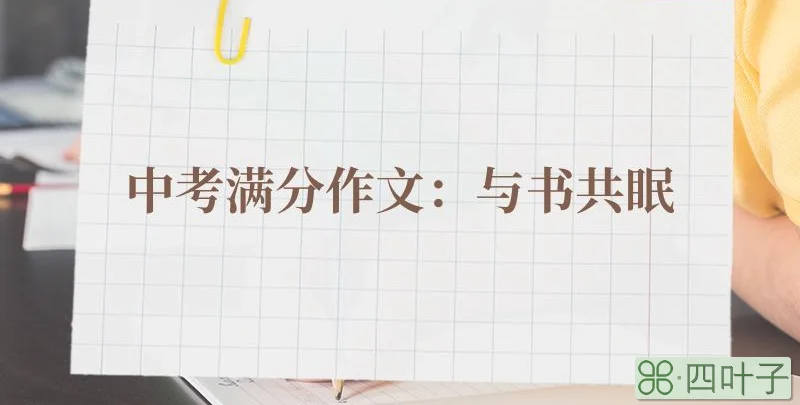 中考满分作文：与书共眠
⌘·四叶子